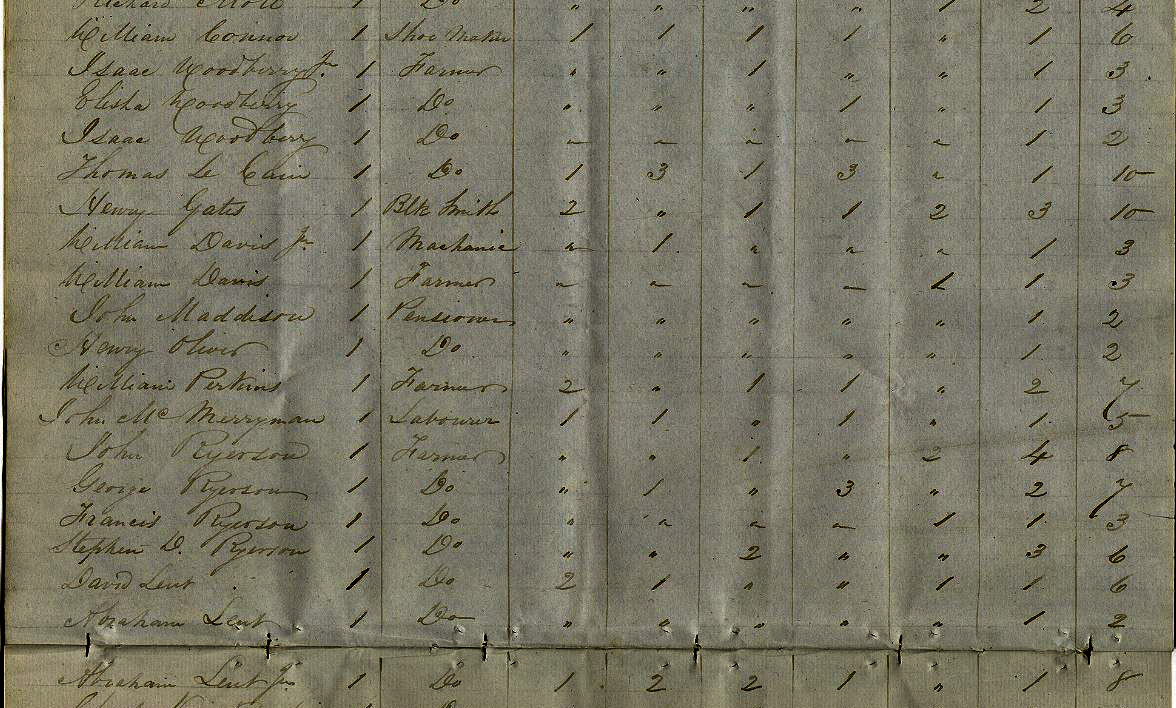 Richard 1 Do " " " " 1 2 4
William Connor 1 Shoe Maker 1 1 1 1 " 1 6
Isaac Woodberry Jr. 1 Farmer " " 1 " " 1 3
Elisha Woodberry 1 Do " " " 1 " 1 3
Isaac Woodberry 1 Do " " " " " 1 2
Thomas Le Cain 1 Do 1 3 1 3 " 1 10
Henry Gates 1 Blk Smith 2 " 1 1 2 3 10
William Davis Jr 1 Machanic " 1 " " " 1 3
William Davis 1 Farmer " " " " 1 1 3
John Maddison 1 Pensioner " " " " " 1 2
Henry Oliver 1 Do " " " " " 1 2
William Perkins 1 Farmer 2 " 1 1 " 2 7
John Mc Merryman 1 Labourer 1 1 " 1 " 1 5
John Ryerson 1 Farmer " " 1 " 2 4 8
George Ryerson 1 Do " 1 " 3 " 2 7
Francis Ryerson 1 Do " " " " 1 1 3
Stephen D. Ryerson 1 Do " " 2 " " 3 6
David Lent 1 Do 2 1 " " 1 1 6
Abraham Lent 1 Do " " " " " 1 2
Abraham Lent Jr. 1 Do 1 2 2 1 " 1 8